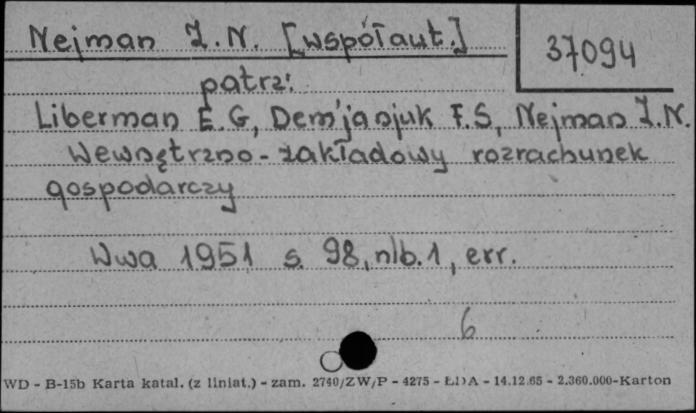 Nejman I.N. [współaut.]
37094
patrz:
Liberman E.G, Dem'janjuk F.S, Nejman I.N.
Wewnętrzno-zakładowy rozrachunek
gospodarczy
Wwa 1951 s. 98, nlb.1, err.
6
WD - B-15b Karta katal. (z liniat.) - zam. 2740/ZW/P - 4275 - ŁDA - 14.12.65 - 2.360.000-Karton